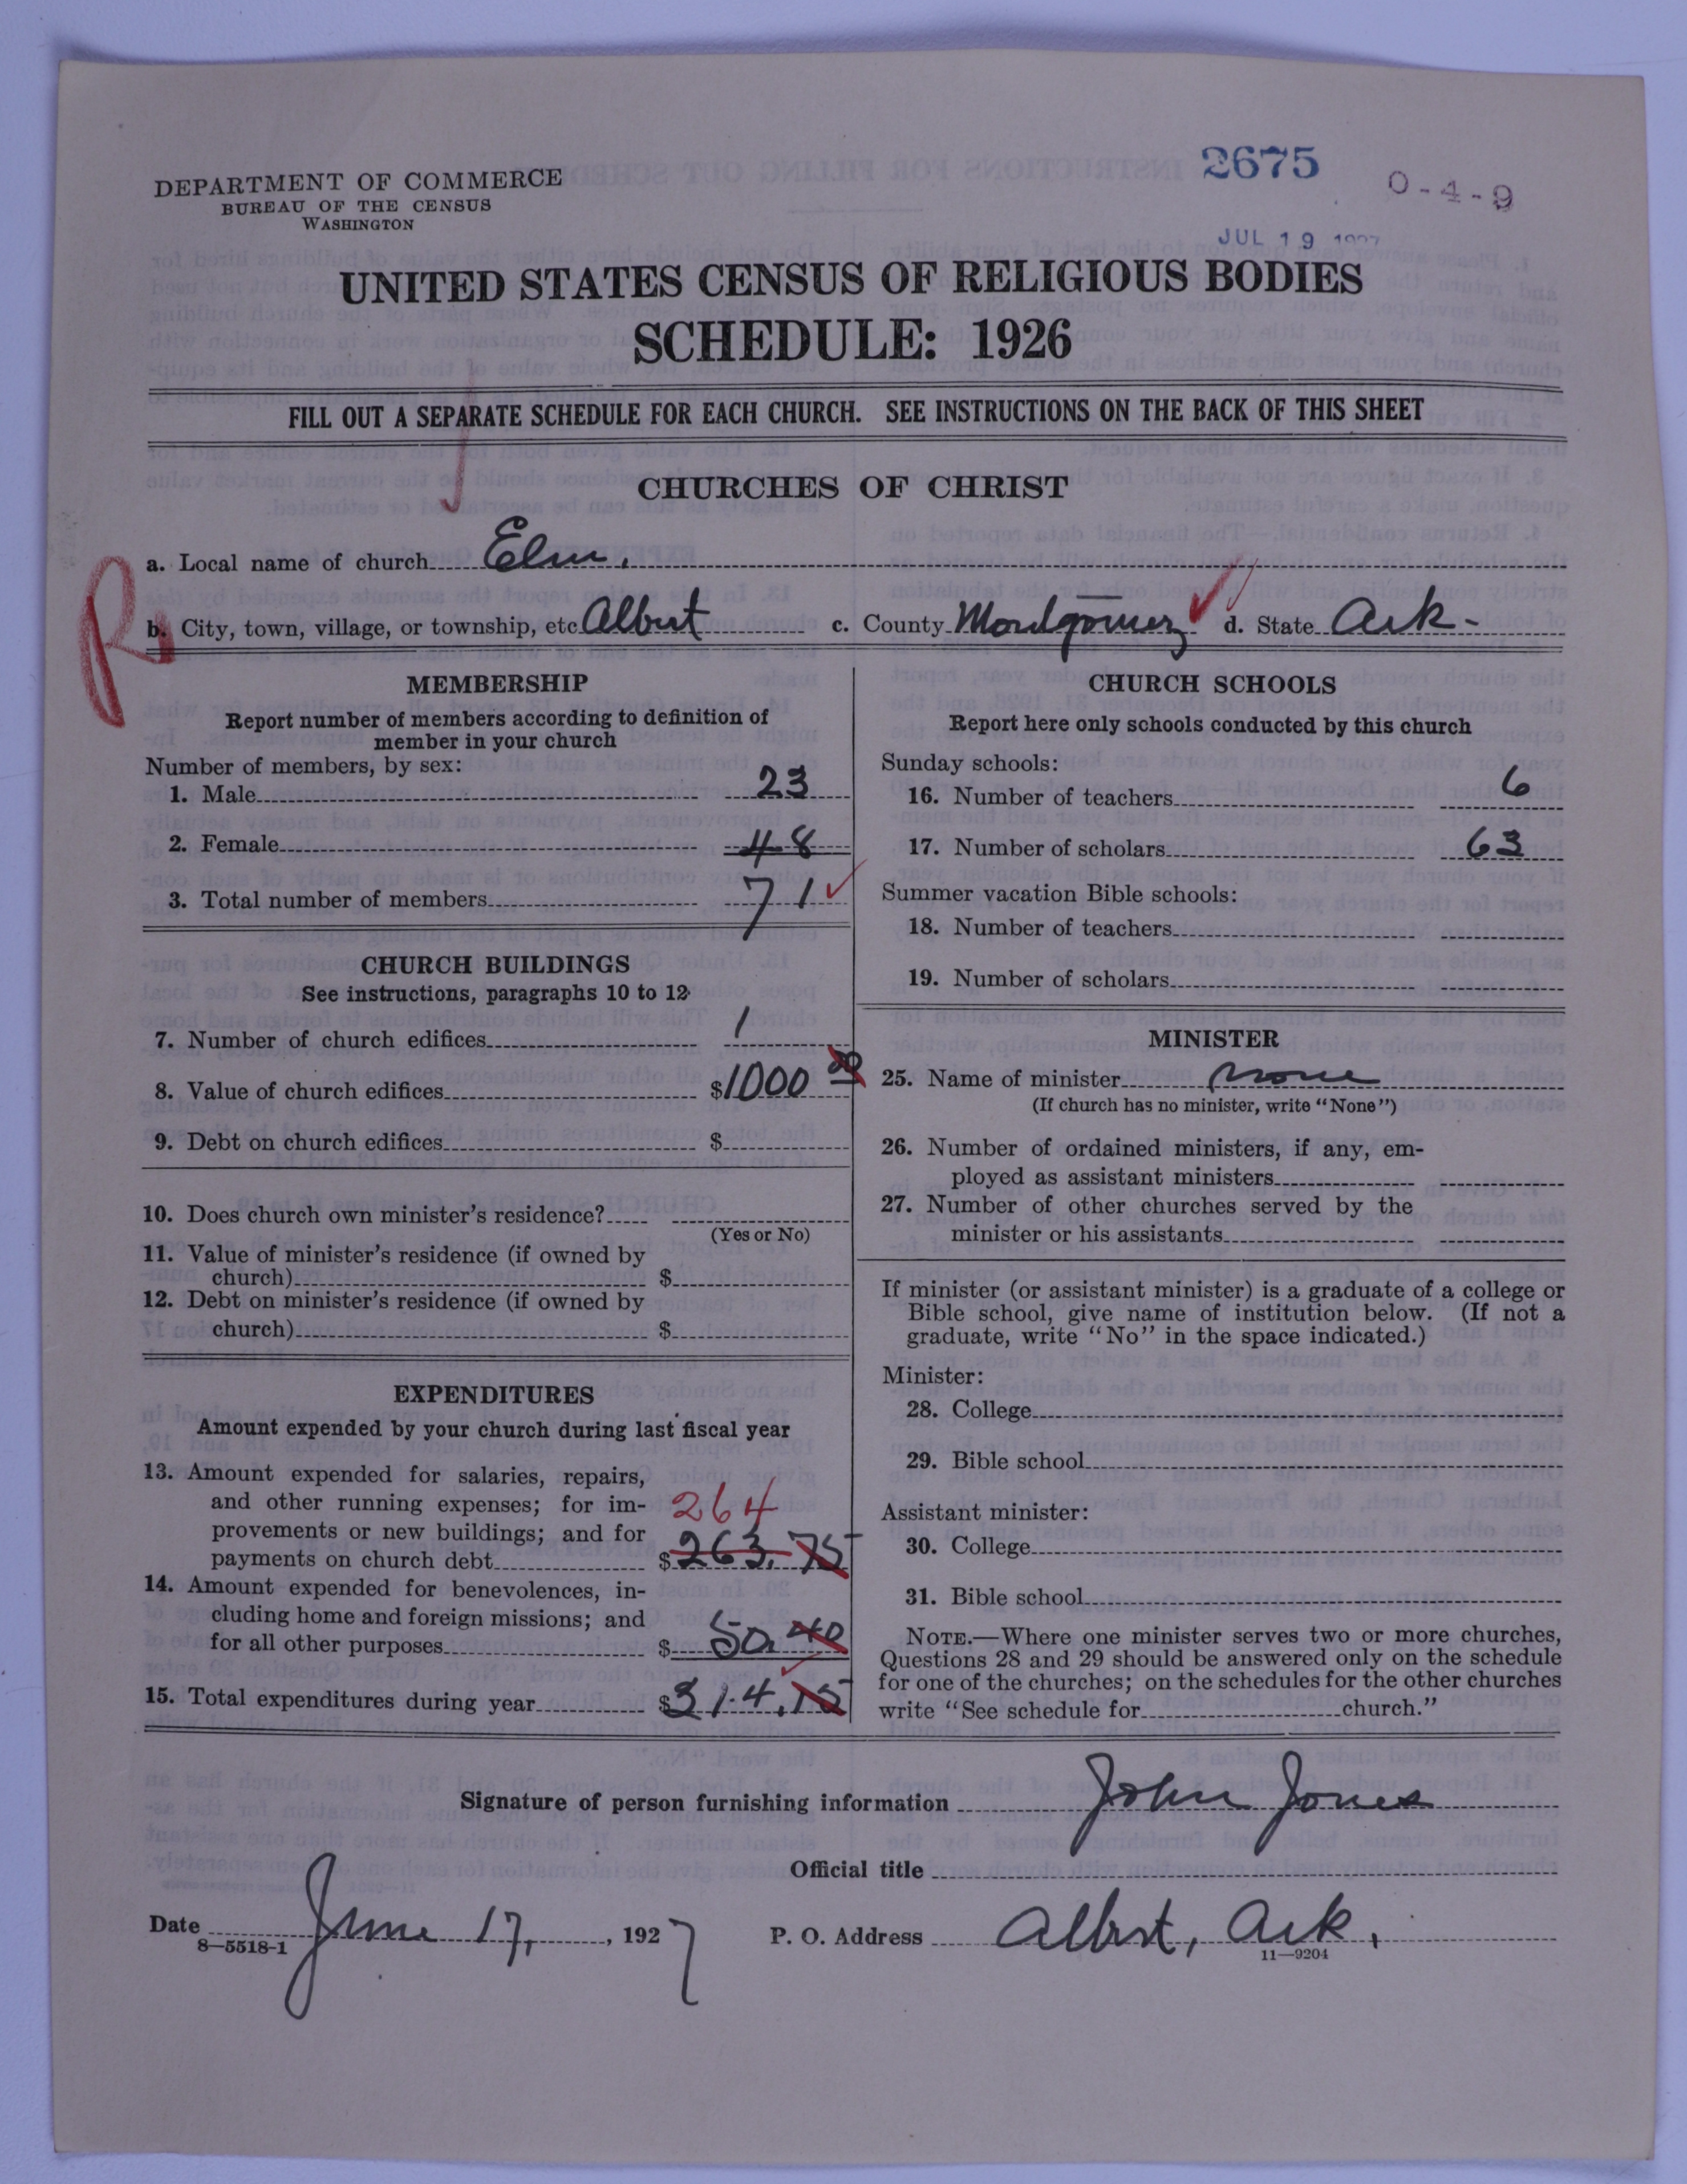 2675
0-4-9
DEPARTMENT OF COMMERCE
BUREAU OF THE CENSUS
WASHINGTON
JUL 19 1927
UNITED STATES CENSUS OF RELIGIOUS BODIES
SCHEDULE: 1926
FILL OUT A SEPARATE SCHEDULE FOR EACH CHURCH. SEE INSTRUCTIONS ON THE BACK OF THIS SHEET
CHURCHES OF CHRIST
R
a. Local name of church Elm.
b. City, town, village, or township, etc Albert c. County Montgomery d. State Ark-
MEMBERSHIP
Report number of members according to definition of
member in your church
Number of members, by sex:
1. Male 23
2. Female 48
3. Total number of members 71
CHURCH BUILDINGS
See instructions, paragraphs 10 to 12
7. Number of church edifices 1
8. Value of church edifices $1000 00
9. Debt on church edifices $
10. Does church own minister's residence?
(Yes or No)
11. Value of minister's residence (if owned by
church) $
12. Debt on minister's residence (if owned by
church) $
EXPENDITURES
Amount expended by your church during last fiscal year
13. Amount expended for salaries, repairs,
and other running expenses; for im-
provements or new buildings; and for 264
payments on church debt $263.75
14. Amount expended for benevolences, in-
cluding home and foreign missions; and
for all other purposes $50.40
15. Total expenditures during year $314.15
CHURCH SCHOOLS
Report here only schools conducted by this church
Sunday schools:
16. Number of teachers 6
17. Number of scholars 63
Summer vacation Bible schools:
18. Number of teachers
19. Number of scholars
MINISTER
25. Name of minister none
(If church has no minister, write "None")
26. Number of ordained ministers, if any, em-
ployed as assistant ministers
27. Number of other churches served by the
minister or his assistants
If minister (or assistant minister) is a graduate of a college or
Bible school, give name of institution below. (If not a
graduate, write "No" in the space indicated.)
Minister:
28. College
29. Bible school
Assistant minister:
30. College
31. Bible school
NOTE.—Where one minister serves two or more churches,
Questions 28 and 29 should be answered only on the schedule
for one of the churches; on the schedules for the other churches
write "See schedule for church."
Signature of person furnishing information John Jones
Official title
Date June 17, 1927 P. O. Address Albert, Ark.
8—5518-1
11—9204